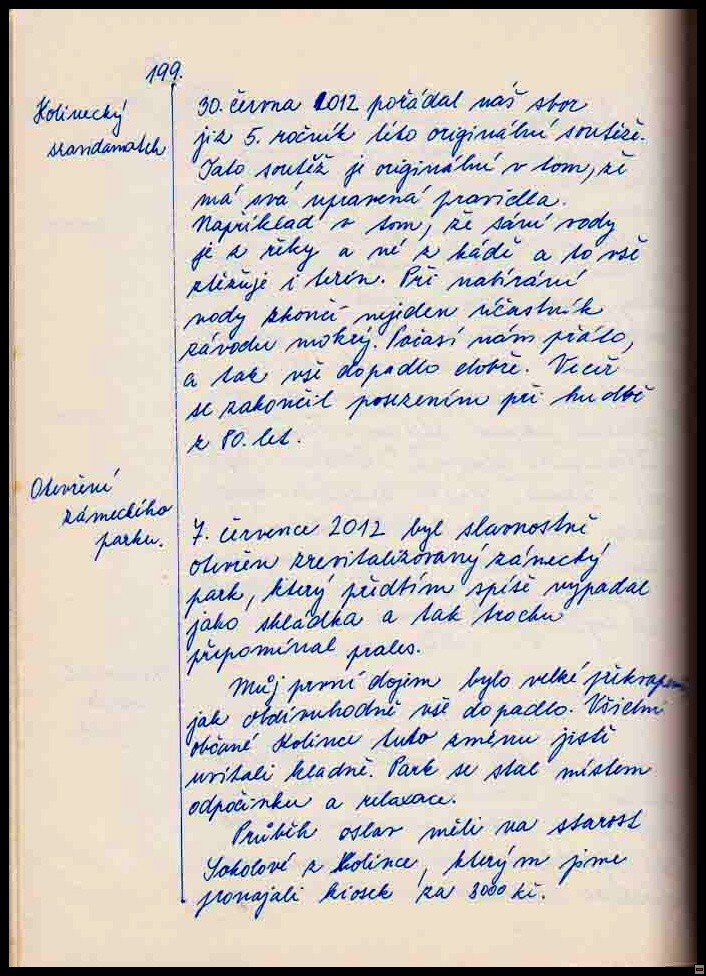 199.
Holinecký
srandamatch
30. června 2012 pořádal náš sbor
již 5. ročník této originální soutěže.
Tato soutěž je originální v tom, že
má svá upravená pravidla.
Například v tom, že sání vody
je z řeky a né z kádě a to vše
ztěžuje i terén. Při nabírání
vody skončí nejiden účastník
závodu mokrý. Počasí nám přálo,
a tak vše dopadlo dobře. Večer
se zakončil posezením při hudbě
z 80. let.
Otevření
zámeckého
parku.
7. července 2012 byl slavnostně
otevřen zrevitalizovaný zámecký
park, který předtím spíše vypadal
jako skládka a tak trochu
připomínal prales.
Můj první dojem bylo velké překvapení
jak obdivuhodně vše dopadlo. Všichni
občané Holince tuto změnu jistě
uvítali kladně. Park se stal místem
odpočinku a relaxace.
Průběh oslav měli na starost
Sokolové z Holince, kterým jsme
pronajali kiosek za 3000 kč.